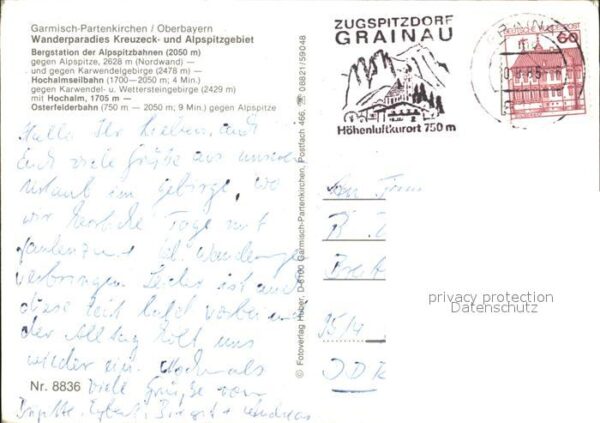 Garmisch-Partenkirchen / Oberbayern
Wanderparadies Kreuzeck- und Alpspitzgebiet
Bergstation der Alpspitzbahnen (2050 m)
gegen Alpspitze, 2628 m (Nordwand) —
und gegen Karwendelgebirge (2478 m) —
Hochalmseilbahn (1700—2050 m; 4 Min.)
gegen Karwendel- u. Wettersteingebirge (2429 m)
mit Hochalm, 1705 m —
Osterfelderbahn (750 m — 2050 m; 9 Min.) gegen Alpspitze
Hallo Ihr Lieben, auch
Euch viele Grüße aus unserem
Urlaub im Gebirge, wo
wir herrliche Tage mit
faulenzen u. Wandern
verbringen. Leider ist auch
diese Zeit bald vorbei und
der Alltag holt uns
wieder ein. Nochmals
viele Grüße von
Brigitte, Birgit + Andreas
Nr. 8836
© Fotoverlag Huber, D-8100 Garmisch-Partenkirchen, Postfach 466, ☎ 08821/59048
ZUGSPITZDORF
GRAINAU
Höhenluftkurort 750 m
GRAINAU
60
DDR
privacy protection
Datenschutz